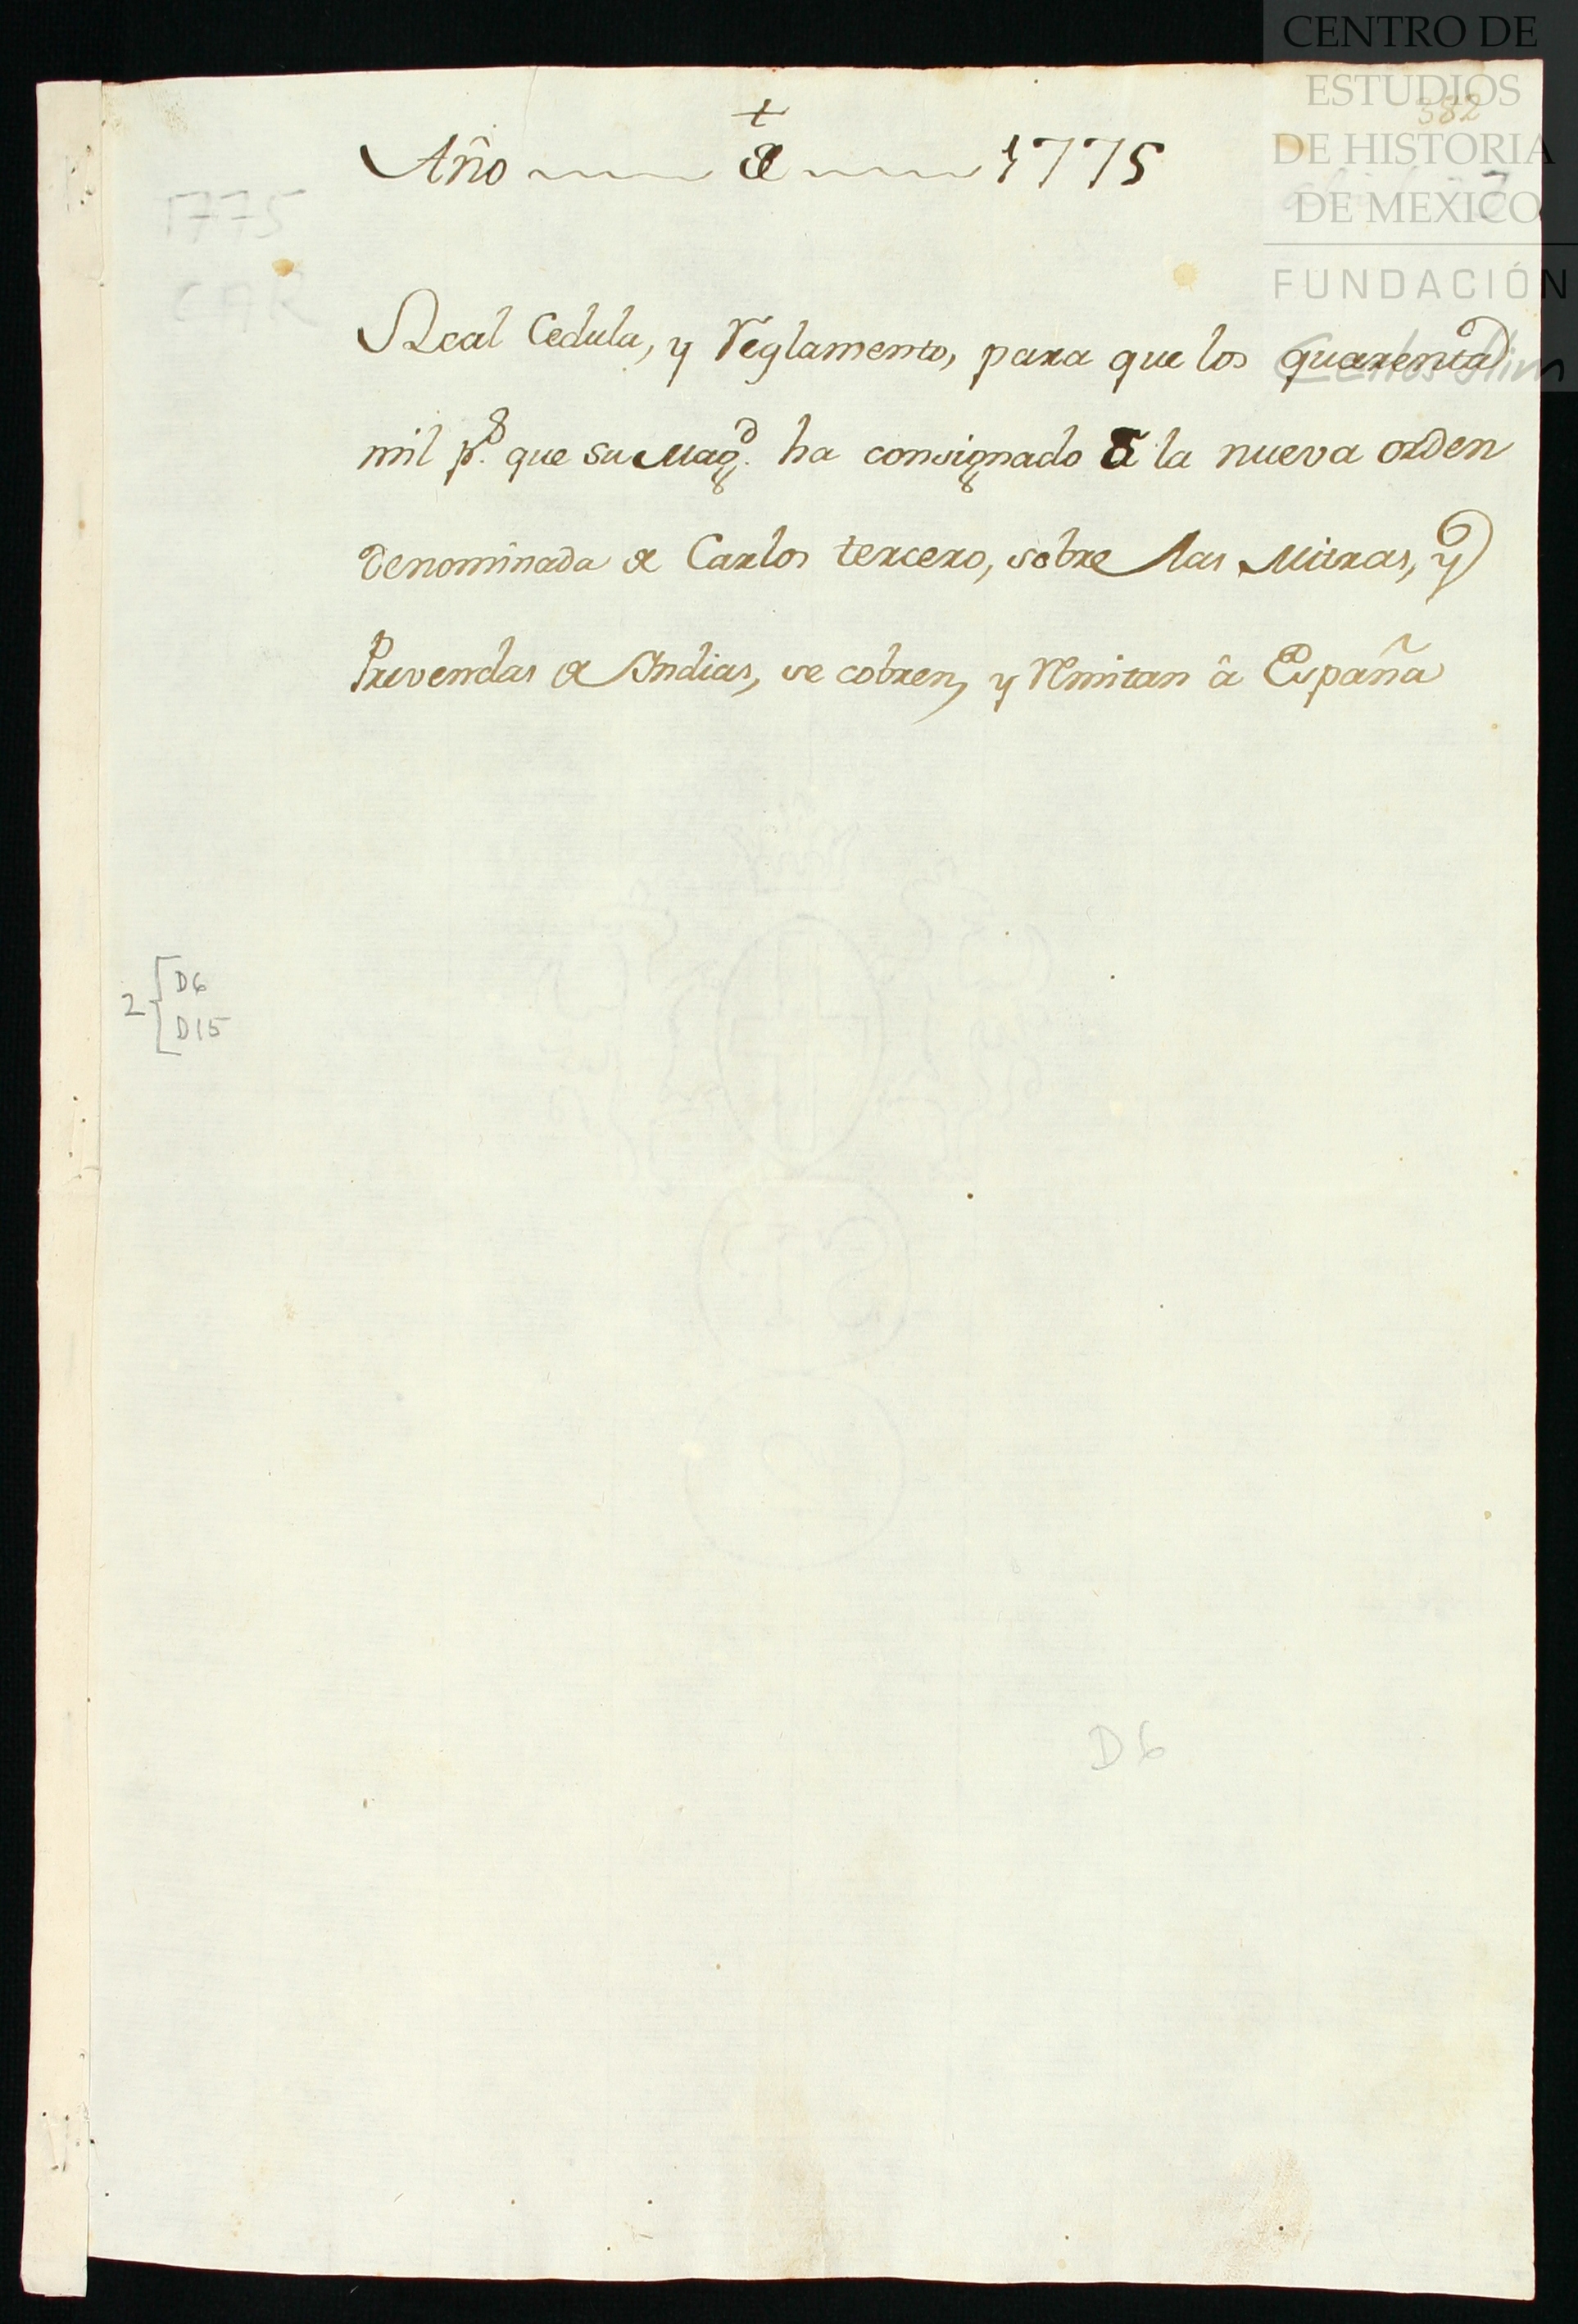 CENTRO DE
ESTUDIOS
DE HISTORIA
DE MEXICO
FUNDACIÓN
Carlos Slim
382
+
Año de 1775
1775
CAR
Real Cedula, y Reglamento, para que los quarenta
mil ps. que su Magd. ha consignado â la nueva orden
denominada de Carlos tercero, sobre las Mitras, y
Prevendas de Indias, se cobren, y Remitan â España
2 [ D6
D15
D6